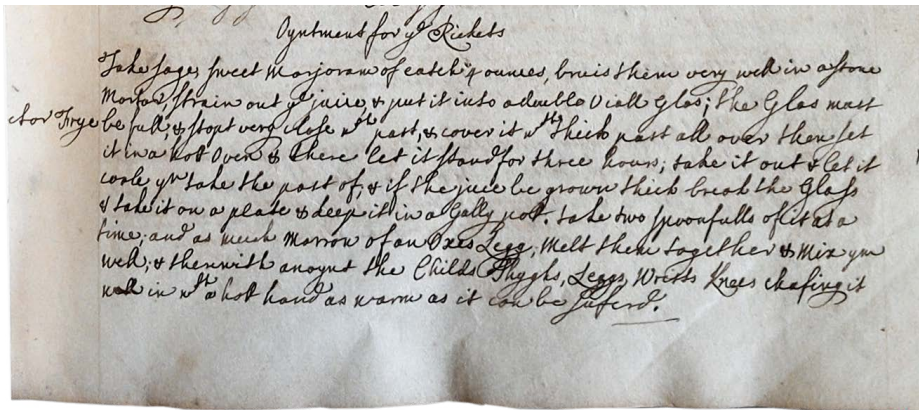 Oyntment for yᵉ Rickets
Take sage, sweet Marjoram of each 4 ounces, bruis them very well in a stone
Mortar, strain out yᵉ juice & put it into a duble Viall Glas; the Glas must
ctor Frye be full, & stopt very close wᵗʰ past, & cover it wᵗʰ thick past all over then set
it in a hot Oven & there let it stand for three hours; take it out & let it
coole yⁿ take the past of, & if the juce be grown thick break the Glass
& take it on a plate & keep it in a Gally pot. take two spoonfulls of it at a
time, and as much Marrow of an Oxes Legg, Melt them together & Mix ym
well; & therewith anoynt the Childs Thyghs, Leggs, Wrists Knees chafing it
well in wᵗʰ a hot hand as warm as it can be suferd.